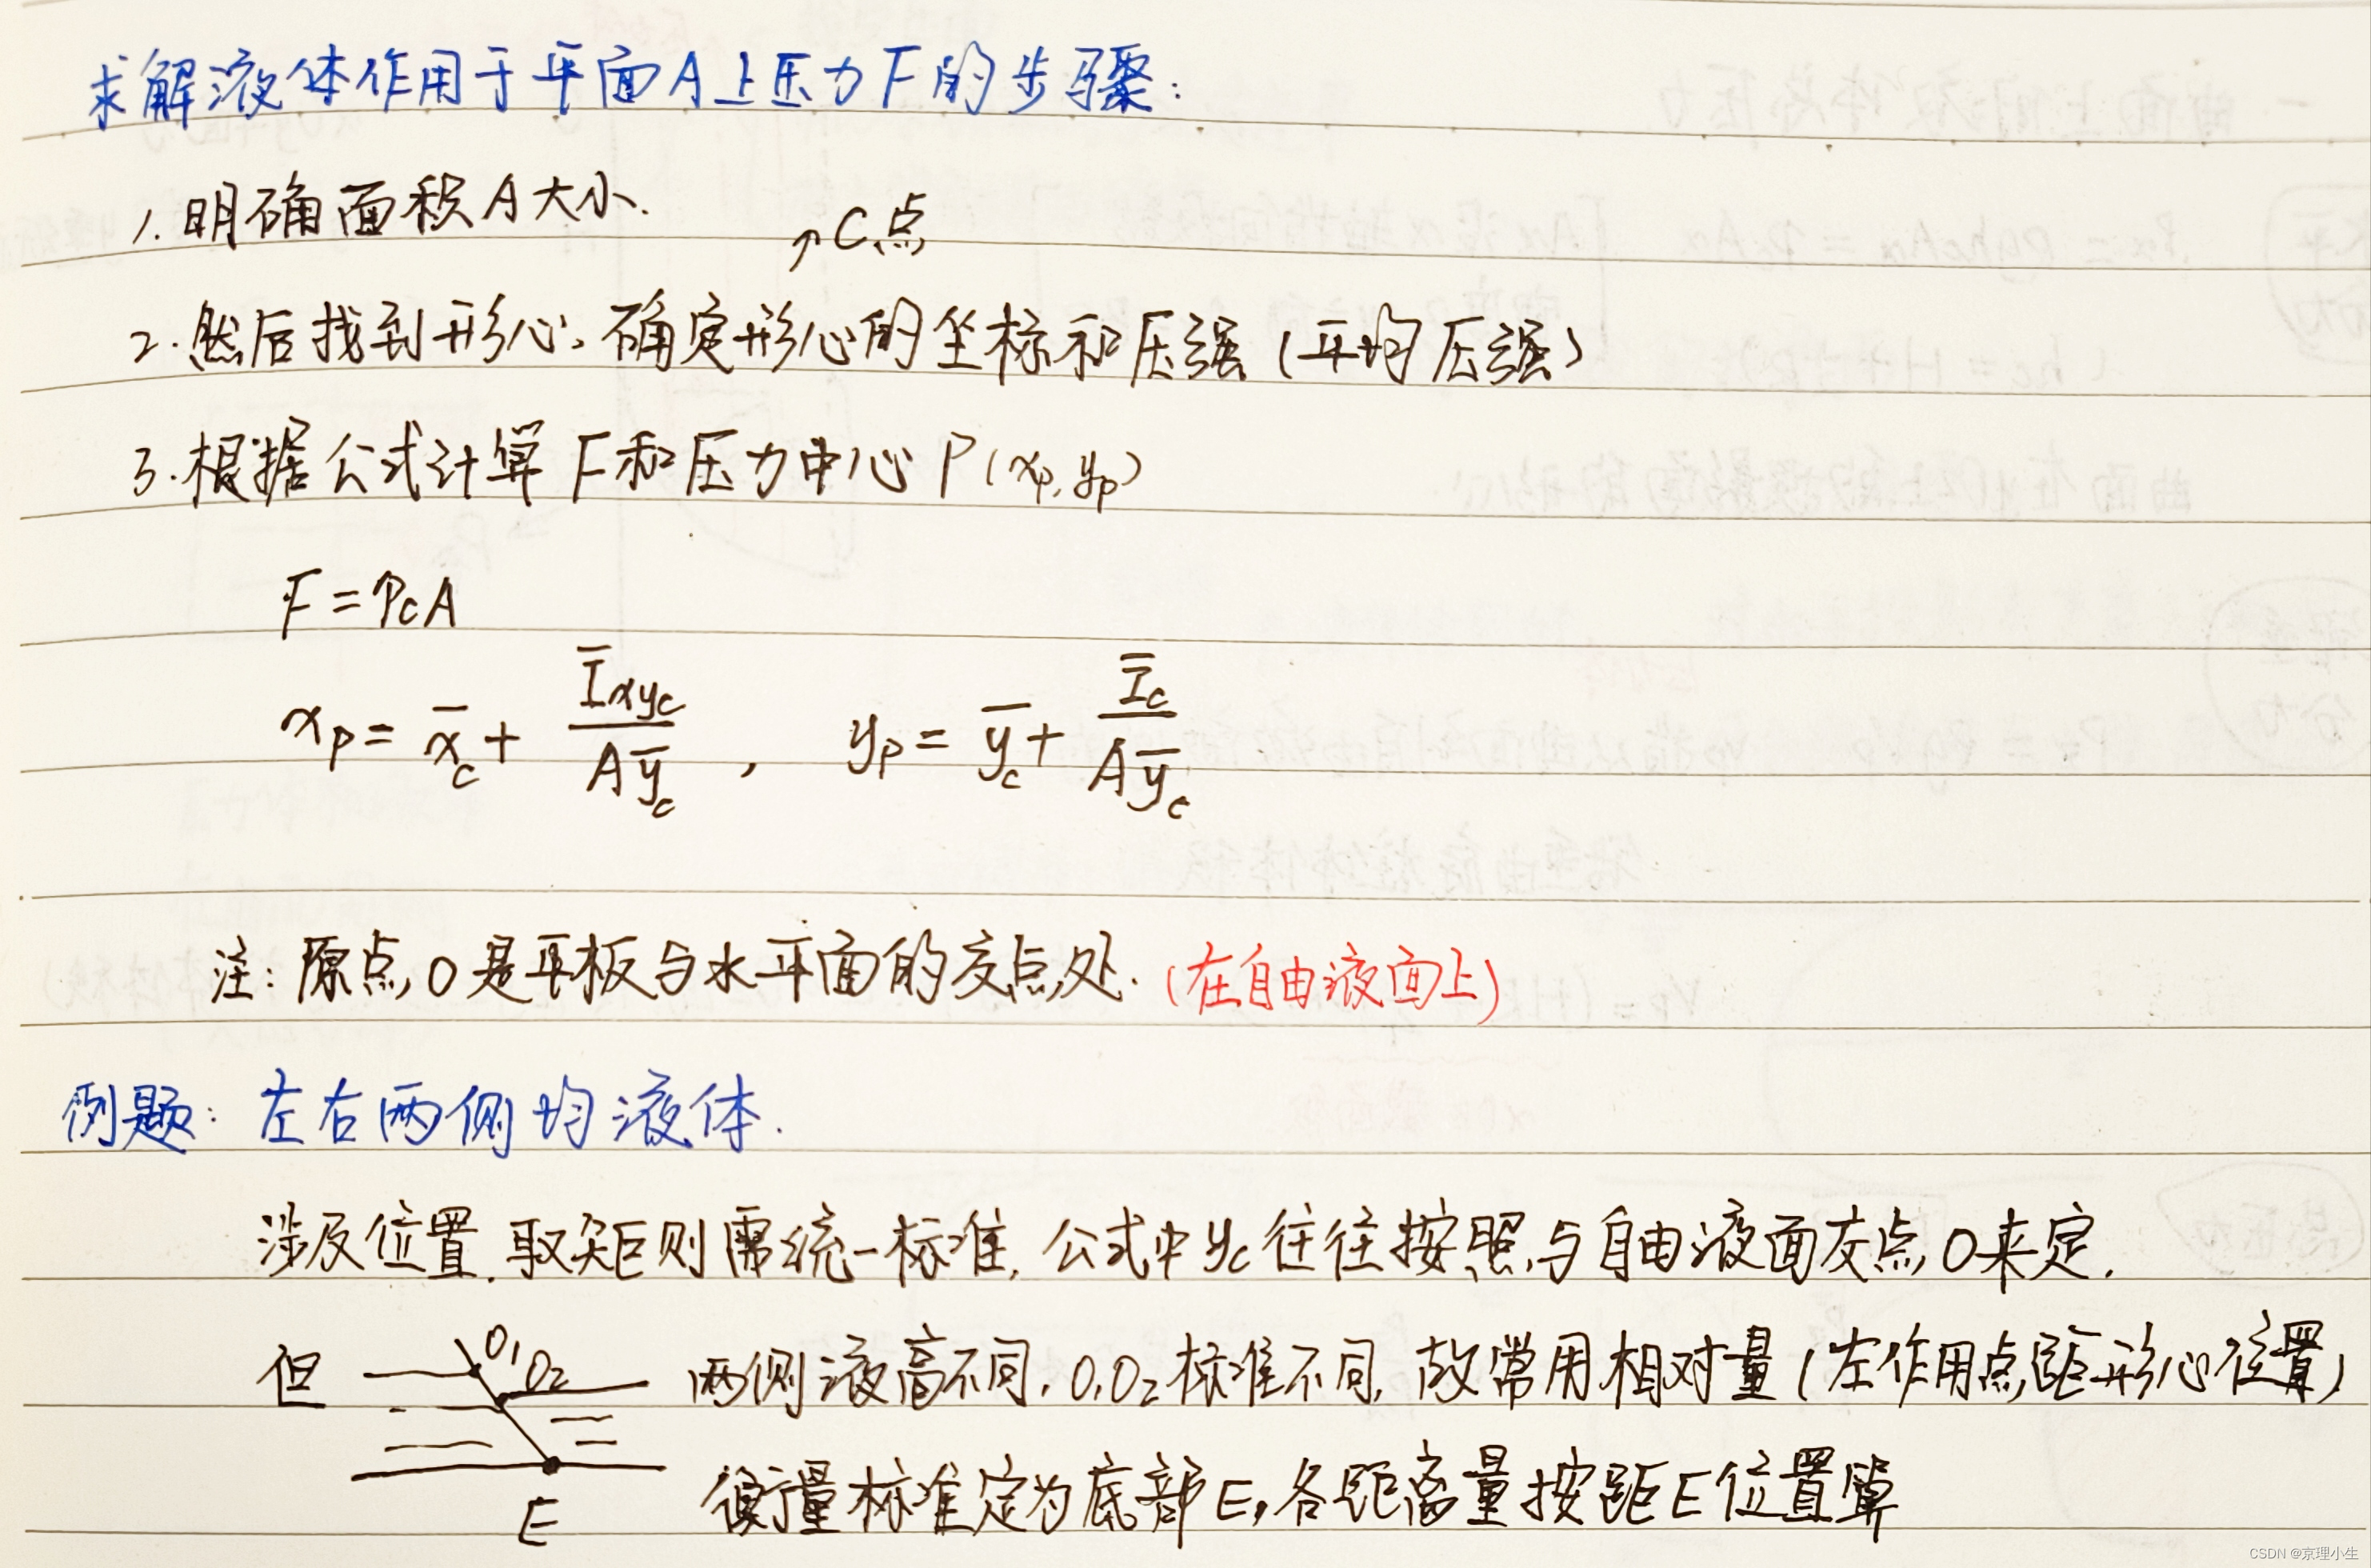 求解液体作用于平面A上压力F的步骤：
1.明确面积A大小.
↗C点
2.然后找到形心,确定形心的坐标和压强(平均压强)
3.根据公式计算F和压力中心P(xₚ,yₚ)
F=P_cA
xₚ= x̄_c + Ī_xyc / Aȳ_c , yₚ= ȳ_c + Ī_c / Aȳ_c
注：原点O是平板与水平面的交点处.(在自由液面上)
例题：左右两侧均液体.
涉及位置.取矩则需统一标准,公式中y_c往往按照与自由液面交点O来定.
但 O₁ O₂ 两侧液高不同,O₁O₂标准不同,故常用相对量(左作用点距形心位置)
E 衡量标准定为底部E,各距离量按距E位置算
CSDN @京理小生